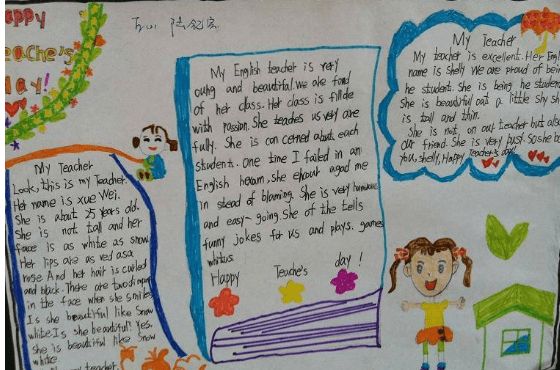 Happy
Teache's
day!
My English teacher is very
and beautiful. we are fond
of her class. Her class is fillde
with passion. She teaches us very are
fully. She is can cerned about each
student. One time I failed in an
English she me
in stead of blaming. She is very
and easy-going She of the tells
funny jokes for us and plays. games
whitus.
Happy Teache's day!
My Teacher
My teacher is excellent. Her Eng
name is shelly We are proud of bein
he student. She is being he studen
She is beautiful a little shy sh
is tall and thin.
She is not on our teacher but also
our friend. She is very busy. So she
you, shelly, Happy Teacher's day!
My Teacher
Look, this is my Teacher.
Her name is xue Wei.
She is about 25 years old.
She is not tall and her
face is as white as snow.
Her lips are as red as a
rose And her hair is curled
and black. There are two
in the face when she smiles
Is she beautiful like Snow
white Is she beautiful? Yes,
She is beautiful like Snow
white
my teacher